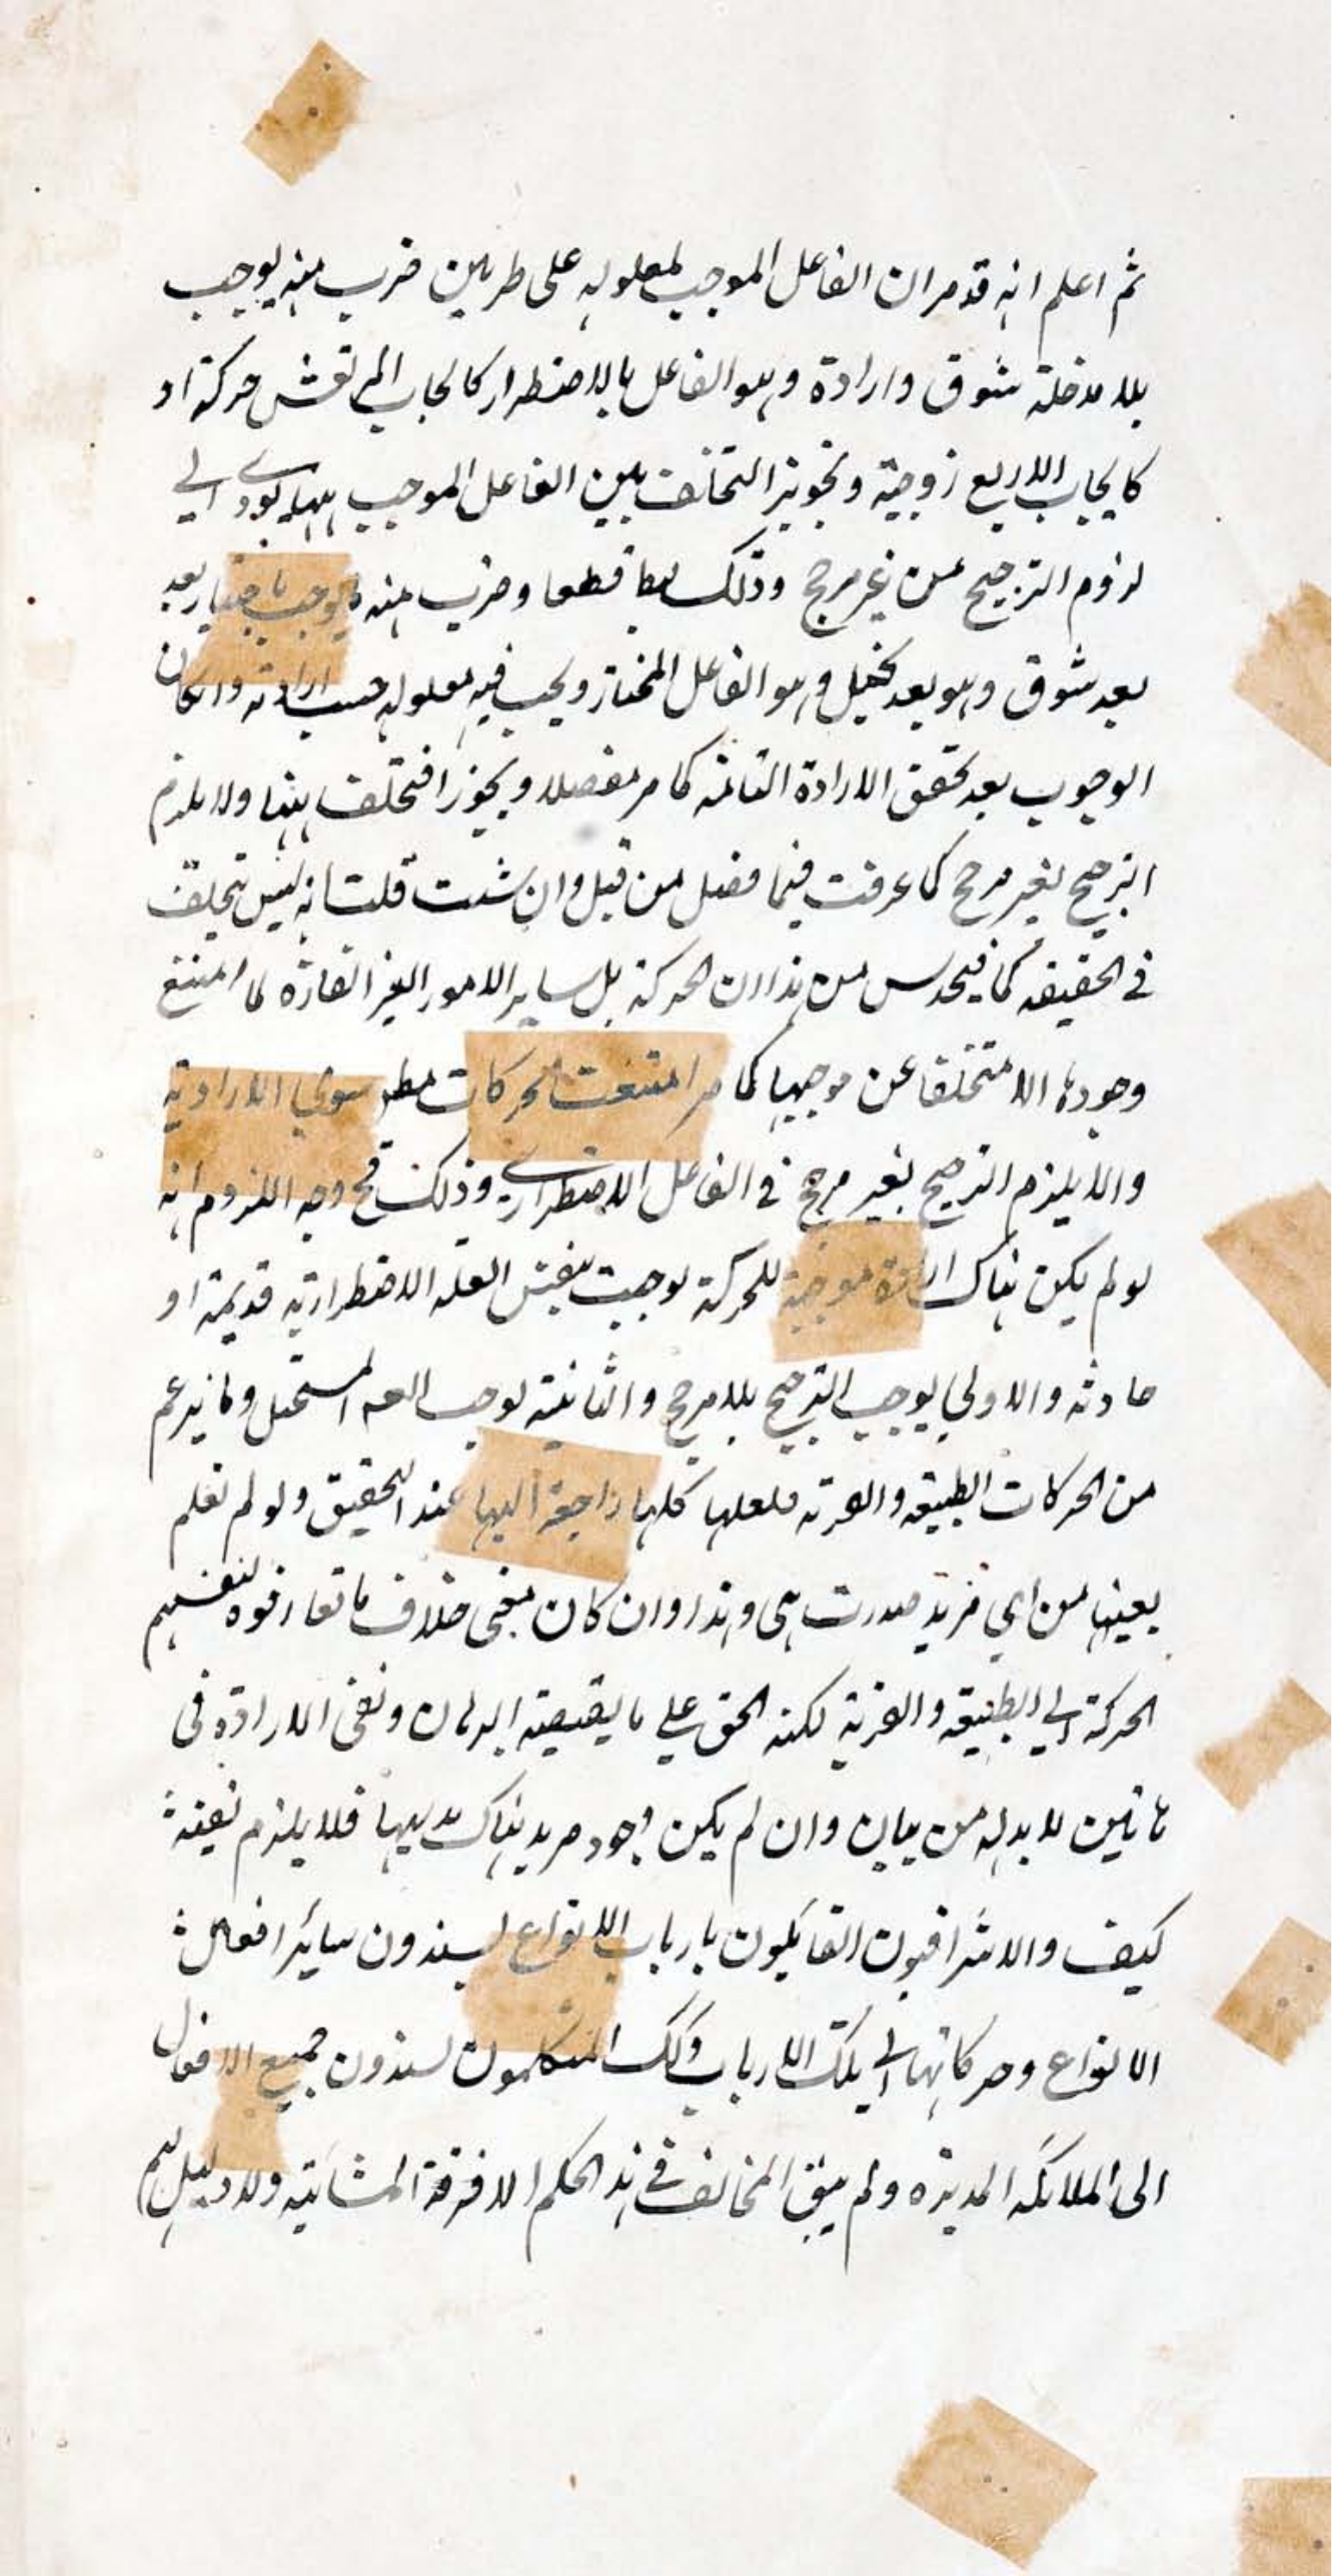 ثم اعلم انه قد مر ان الفاعل الموجب لمعلوله على طريقين ضرب منه يوجب
بلا مدخلة شوق وارادة وهو الفاعل بالاضطرار كايجاب المرتعش حركة او
كايجاب الاربع زوجية وتجويز التخلف بين الفاعل الموجب بهما يودى الى
لزوم الترجيح من غير مرجح وذلك بط قطعا وضرب منه يوجب باختيار بعد
بعد شوق وهو بعد تخيل وهو الفاعل المختار ويجب فيه معلوله حسب ارادته وان كان
الوجوب بعد تحقق الارادة التامه كما مر مفصلا ويجوز التخلف بينها ولا يلزم
الترجيح بغير مرجح كما عرفت فيما فصل من قبل وان شئت قلت انه ليس بتخلف
فى الحقيقه كما فيحدس من هذا ان الحركة بل ساير الامور الغير القارة لما امتنع
وجودها الا متخلفا عن موجبها كما مر امتنعت الحركات مط سوى الارادية
والا يلزم الترجيح بغير مرجح فى الفاعل الاضطرارى وذلك مح وجه اللزوم انه
لو لم يكن هناك ارادة موجبة للحركة لوجبت بنفس العلة الاضطرارية قديمة او
حادثه والاولى يوجب الترجيح بلا مرجح والثانية يوجب المستحيل وما يزعم
من الحركات الطبيعة والقسرية فلعلها كلها راجعة اليها عند التحقيق ولو لم نعلم
بعينها من اى مريد صدرت هى وهذا وان كان خلاف ما تعارفوه لتقسيمهم
الحركة الى الطبيعة والقسرية لكنه الحق على ما يقتضيه البرهان ونفى الارادة فى
لا بد له من بيان وان لم يكن وجود مريد هناك بديهيا فلا يلزم نفيه
كيف والاشراقيون القائلون بارباب الانواع يسندون سائر افعال
الانواع وحركاتها الى تلك الارباب وكك المتكلمون يسندون جميع الافعال
الى الملائكه المدبره ولم يبق المخالف فى هذا الحكم الا فرقة المشائيه ولا دليل لهم